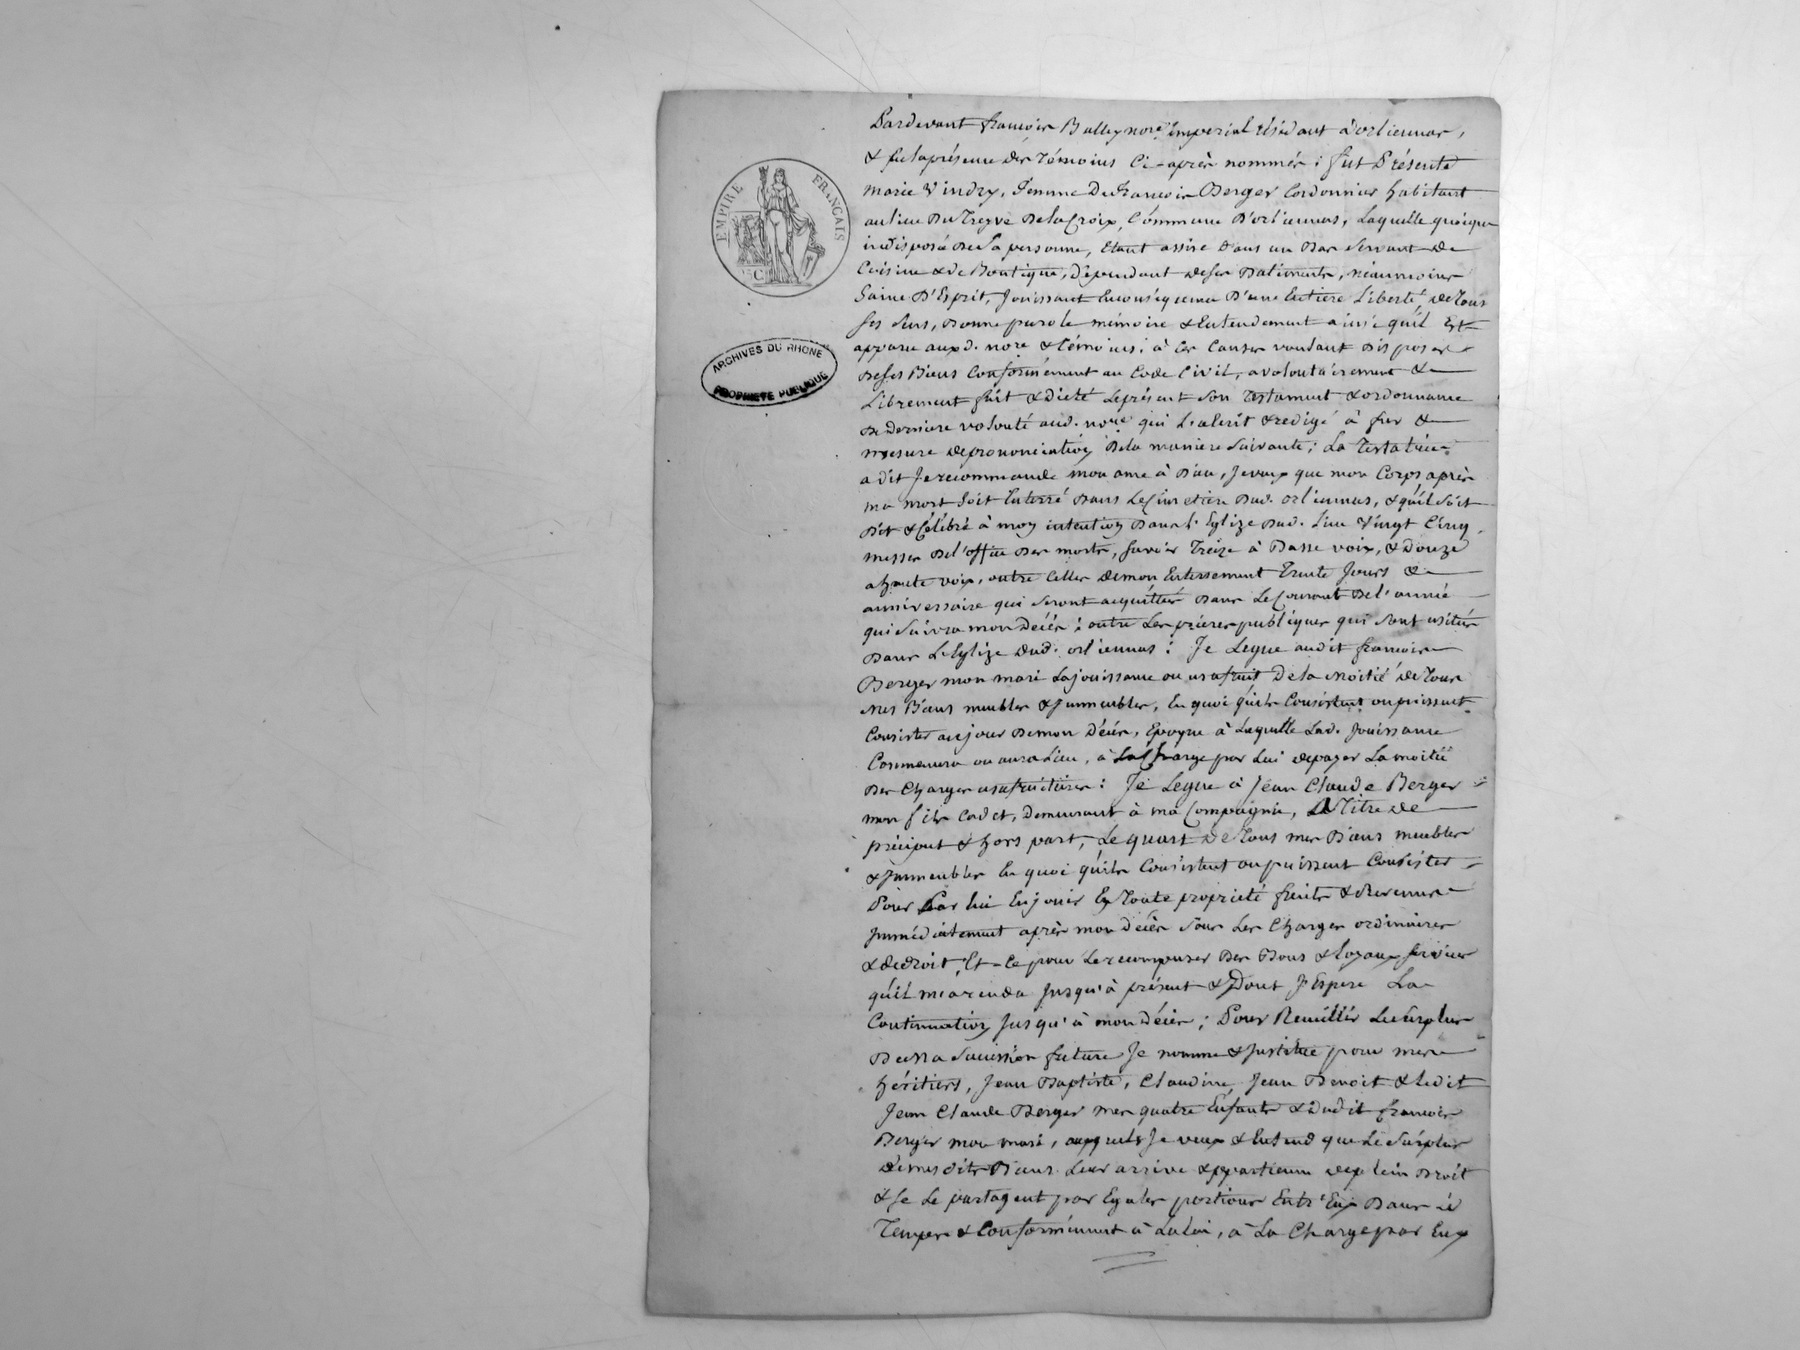 EMPIRE FRANÇAIS
ARCHIVES DU RHONE
PROPRIÉTÉ PUBLIQUE
Pardevant françois Balley nore. impérial résidant à orliennas,
& en la présence des témoins ci-après nommés ; fut Présente
marie Vindry, femme De françois Berger Cordonnier habitant
au lieu Du Treyve De la Croix, Commune D'orliennas, Laquelle quoique
indisposée De Sa personne, Etant assise dans un Bas Servant de
Cuisine & de Boutique, dépendant de ses Batiments, néanmoins
Saine D'Esprit, Jouissant En conséquence D'une Entiere Liberté de Tous
ses sens, Bonne parole mémoire & Entendement ainsi qu'il Est
apparu aux d. nore & témoins ; à Ces Causes voulant Disposer
De ses Biens Conformément au Code Civil, a volontairement &
Librement fait & dicté Le présent Son Testament & ordonnance
De Derniere volonté aud. nore qui L'a écrit & redigé à fur &
mesure de prononciation De la maniere Suivante ; La Testatrice
a dit Je recommande mon ame à Dieu, Je veux que mon Corps après
ma mort Soit Enterré Dans Le Cimetiere Dud. orliennas, & qu'il Soit
Dit & Célébré à mon intention Dans L'Eglize Dud. Lieu Vingt Cinq
messes De l'office Des morts, Savoir Treize à Basse voix, & Douze
a haute voix, outre Celles de mon Enterrement Trente Jours &
anniversaire qui Seront acquittés Dans Le Courant De l'année
qui Suivra mon Décès ; outre Les prieres publiques qui Sont usitées
Dans L'Eglize Dud. orliennas : Je Legue audit françois
Berger mon mari La jouissance ou usufruit De la Moitié de Tous
Mes Biens meubles & Immeubles, En quoi qu'ils Consistent ou puissent
Consister au jour De mon Décès, Epoque à Laquelle Lad. Jouissance
Commencera ou aura Lieu, à La Charge par Lui de payer La moitié
Des Charges usufruitieres : Je Legue à Jean Claude Berger
mon fils Cadet, Demeurant à ma Compagnie, A Titre de
préciput & hors part, Le quart De Tous mes Biens meubles
& Immeubles En quoi qu'ils Consistent ou puissent Consister
Pour Par lui En jouir En Toute propriété fruits & Revenus
Immédiatement après mon décès Sous Les Charges ordinaires
& de droit, Et-Ce pour Le recompenser Des Bons & loyaux Services
qu'il m'a rendu Jusqu'à présent & Dont J'Espere La
Continuation Jusqu'à mon Décès ; Pour Recueillir Le Surplus
De Ma Succession future Je nomme & Institue pour mes
héritiers, Jean Baptiste, Claudine, Jean Benoit & Ledit
Jean Claude Berger mes quatre Enfants & dudit françois
Berger mon mari, auxquels Je veux & Entend que Le Surplus
De mes dits Biens Leur arrive & appartienne de plein Droit
& Se Le partagent par Egales portions Entr'Eux Dans Le
Temps & Conformément à La loi, à La Charge par Eux